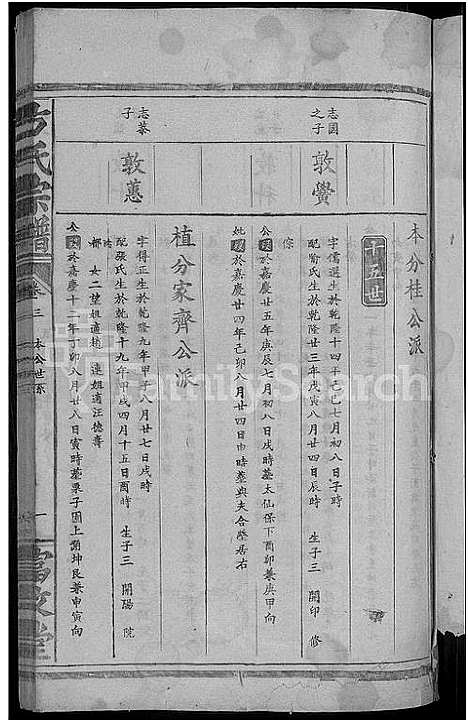 本分桂公派
十五世
志國之子
敦黌
字儒選生於乾隆十四年己巳七月初八日子時
配喻氏生於乾隆廿三年戊寅八月廿四日辰時 生子三 開印 修
倧
公歿於嘉慶廿五年庚辰七月初八日戌時墓太仙保下酉卯兼庚甲向
妣歿於嘉慶廿四年己卯八月廿四日申時墓與夫合塋居右
植分家齊公派
志綦子
敦蕙
字得正生於乾隆九年甲子八月廿七日戌時
配張氏生於乾隆十九年甲戌四月十五日酉時 生子三 開陽 院
女二 姐適趙 連姐適汪德壽
公歿於嘉慶十二年丁卯八月廿八日寅時墓栗子園上謝坤艮兼申寅向
氏宗譜
卷三
本公世系
一
FamilySearch